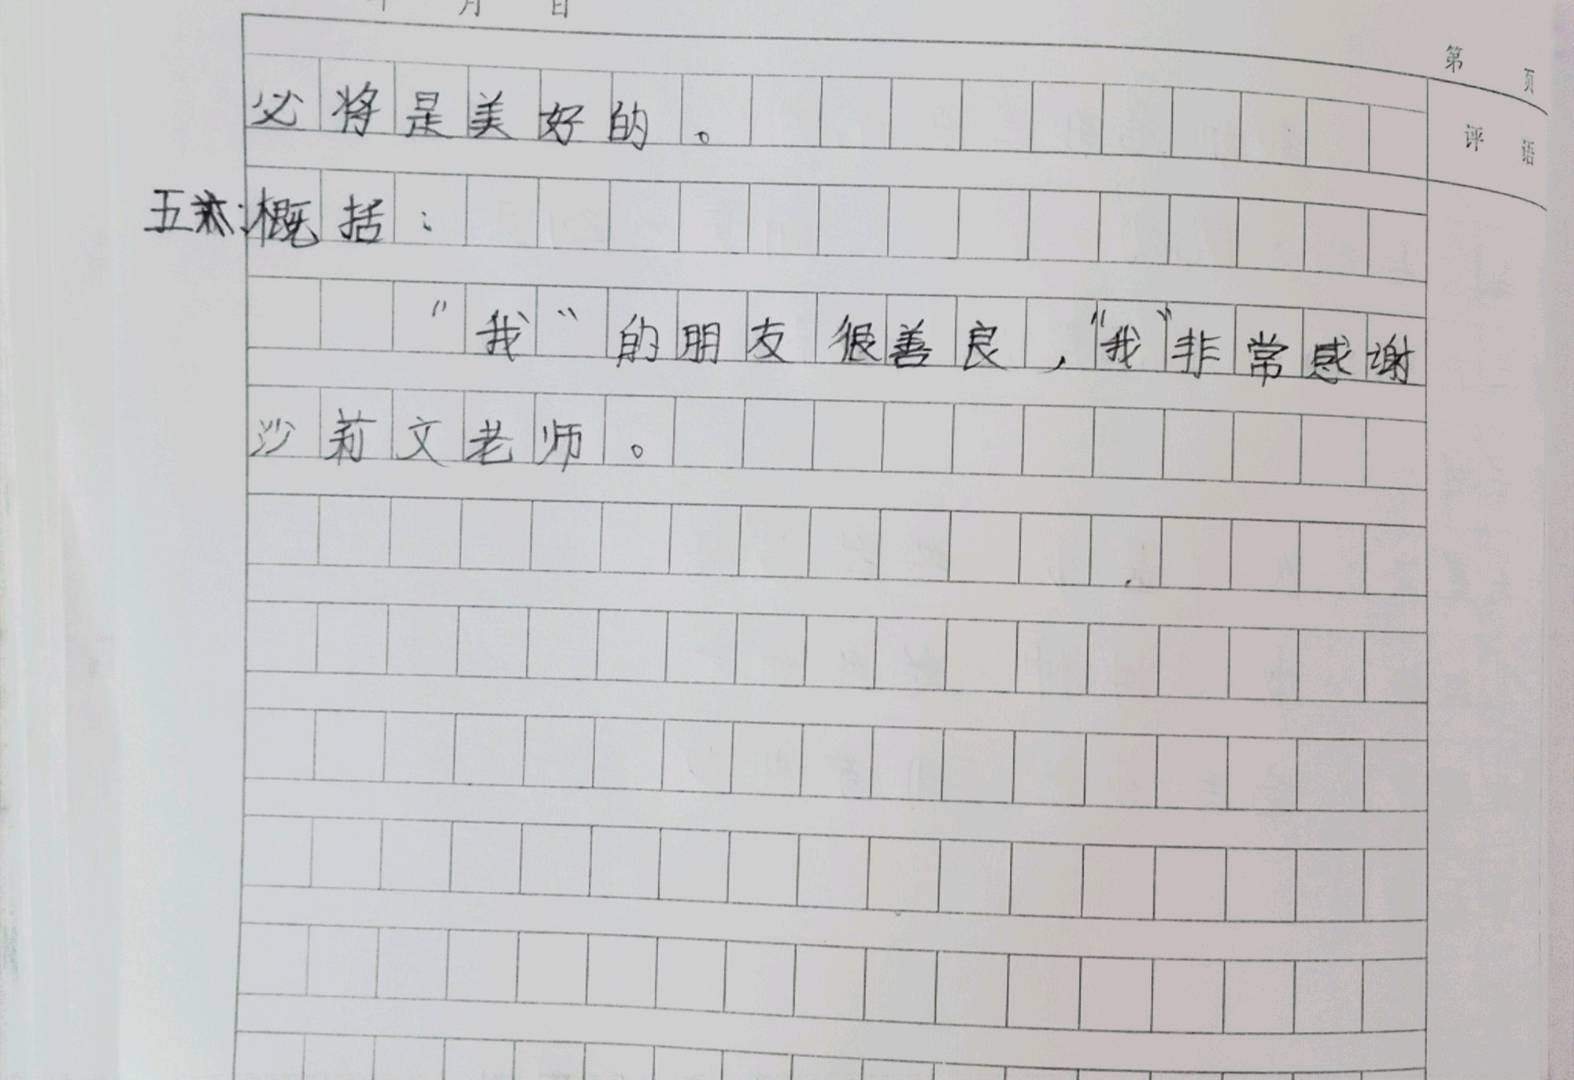 年 月 日
第 页
评 语
必将是美好的。
五、概括：
“我”的朋友很善良，“我”非常感谢
沙莉文老师。